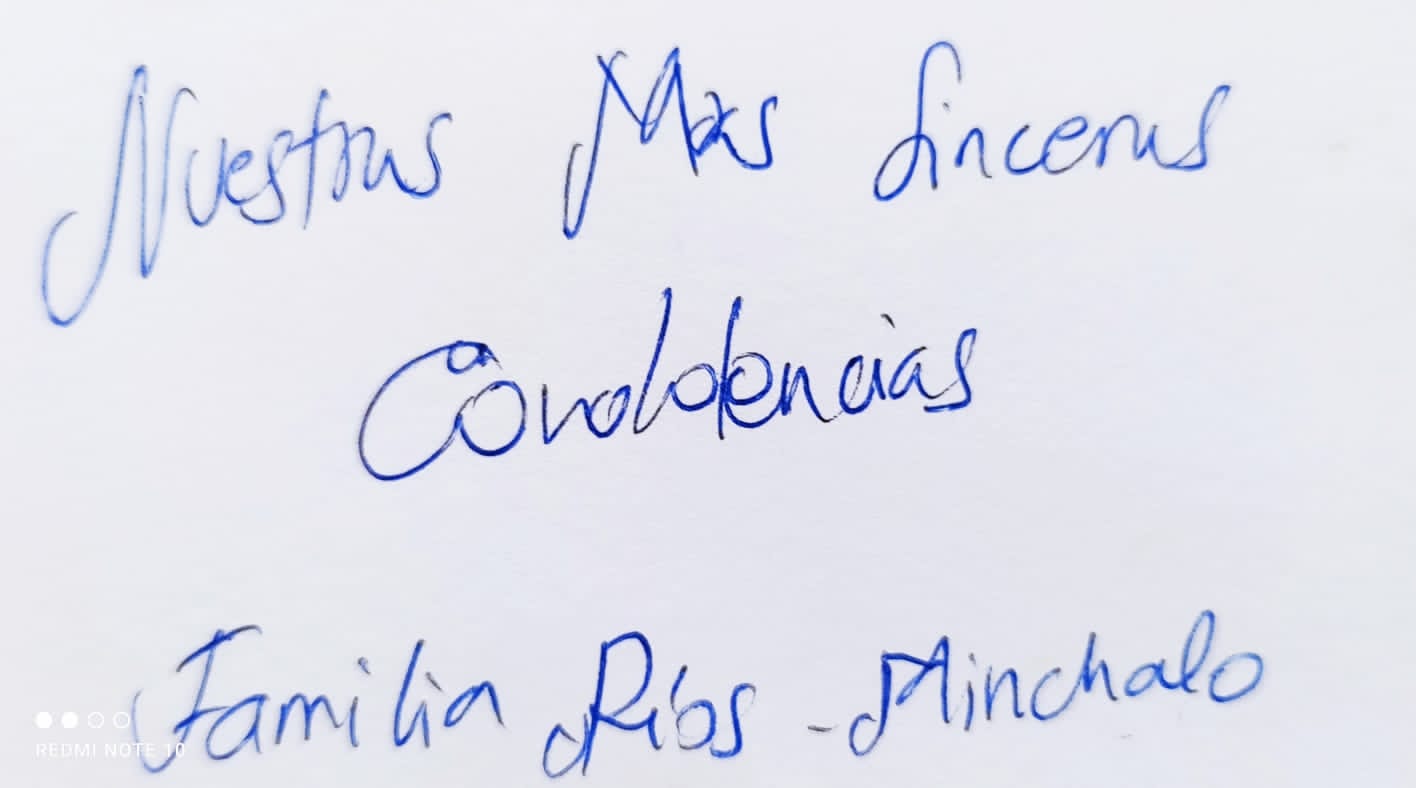 Nuestras Mas Sinceras
Condolencias
Familia Ríos - Minchalo
REDMI NOTE 10